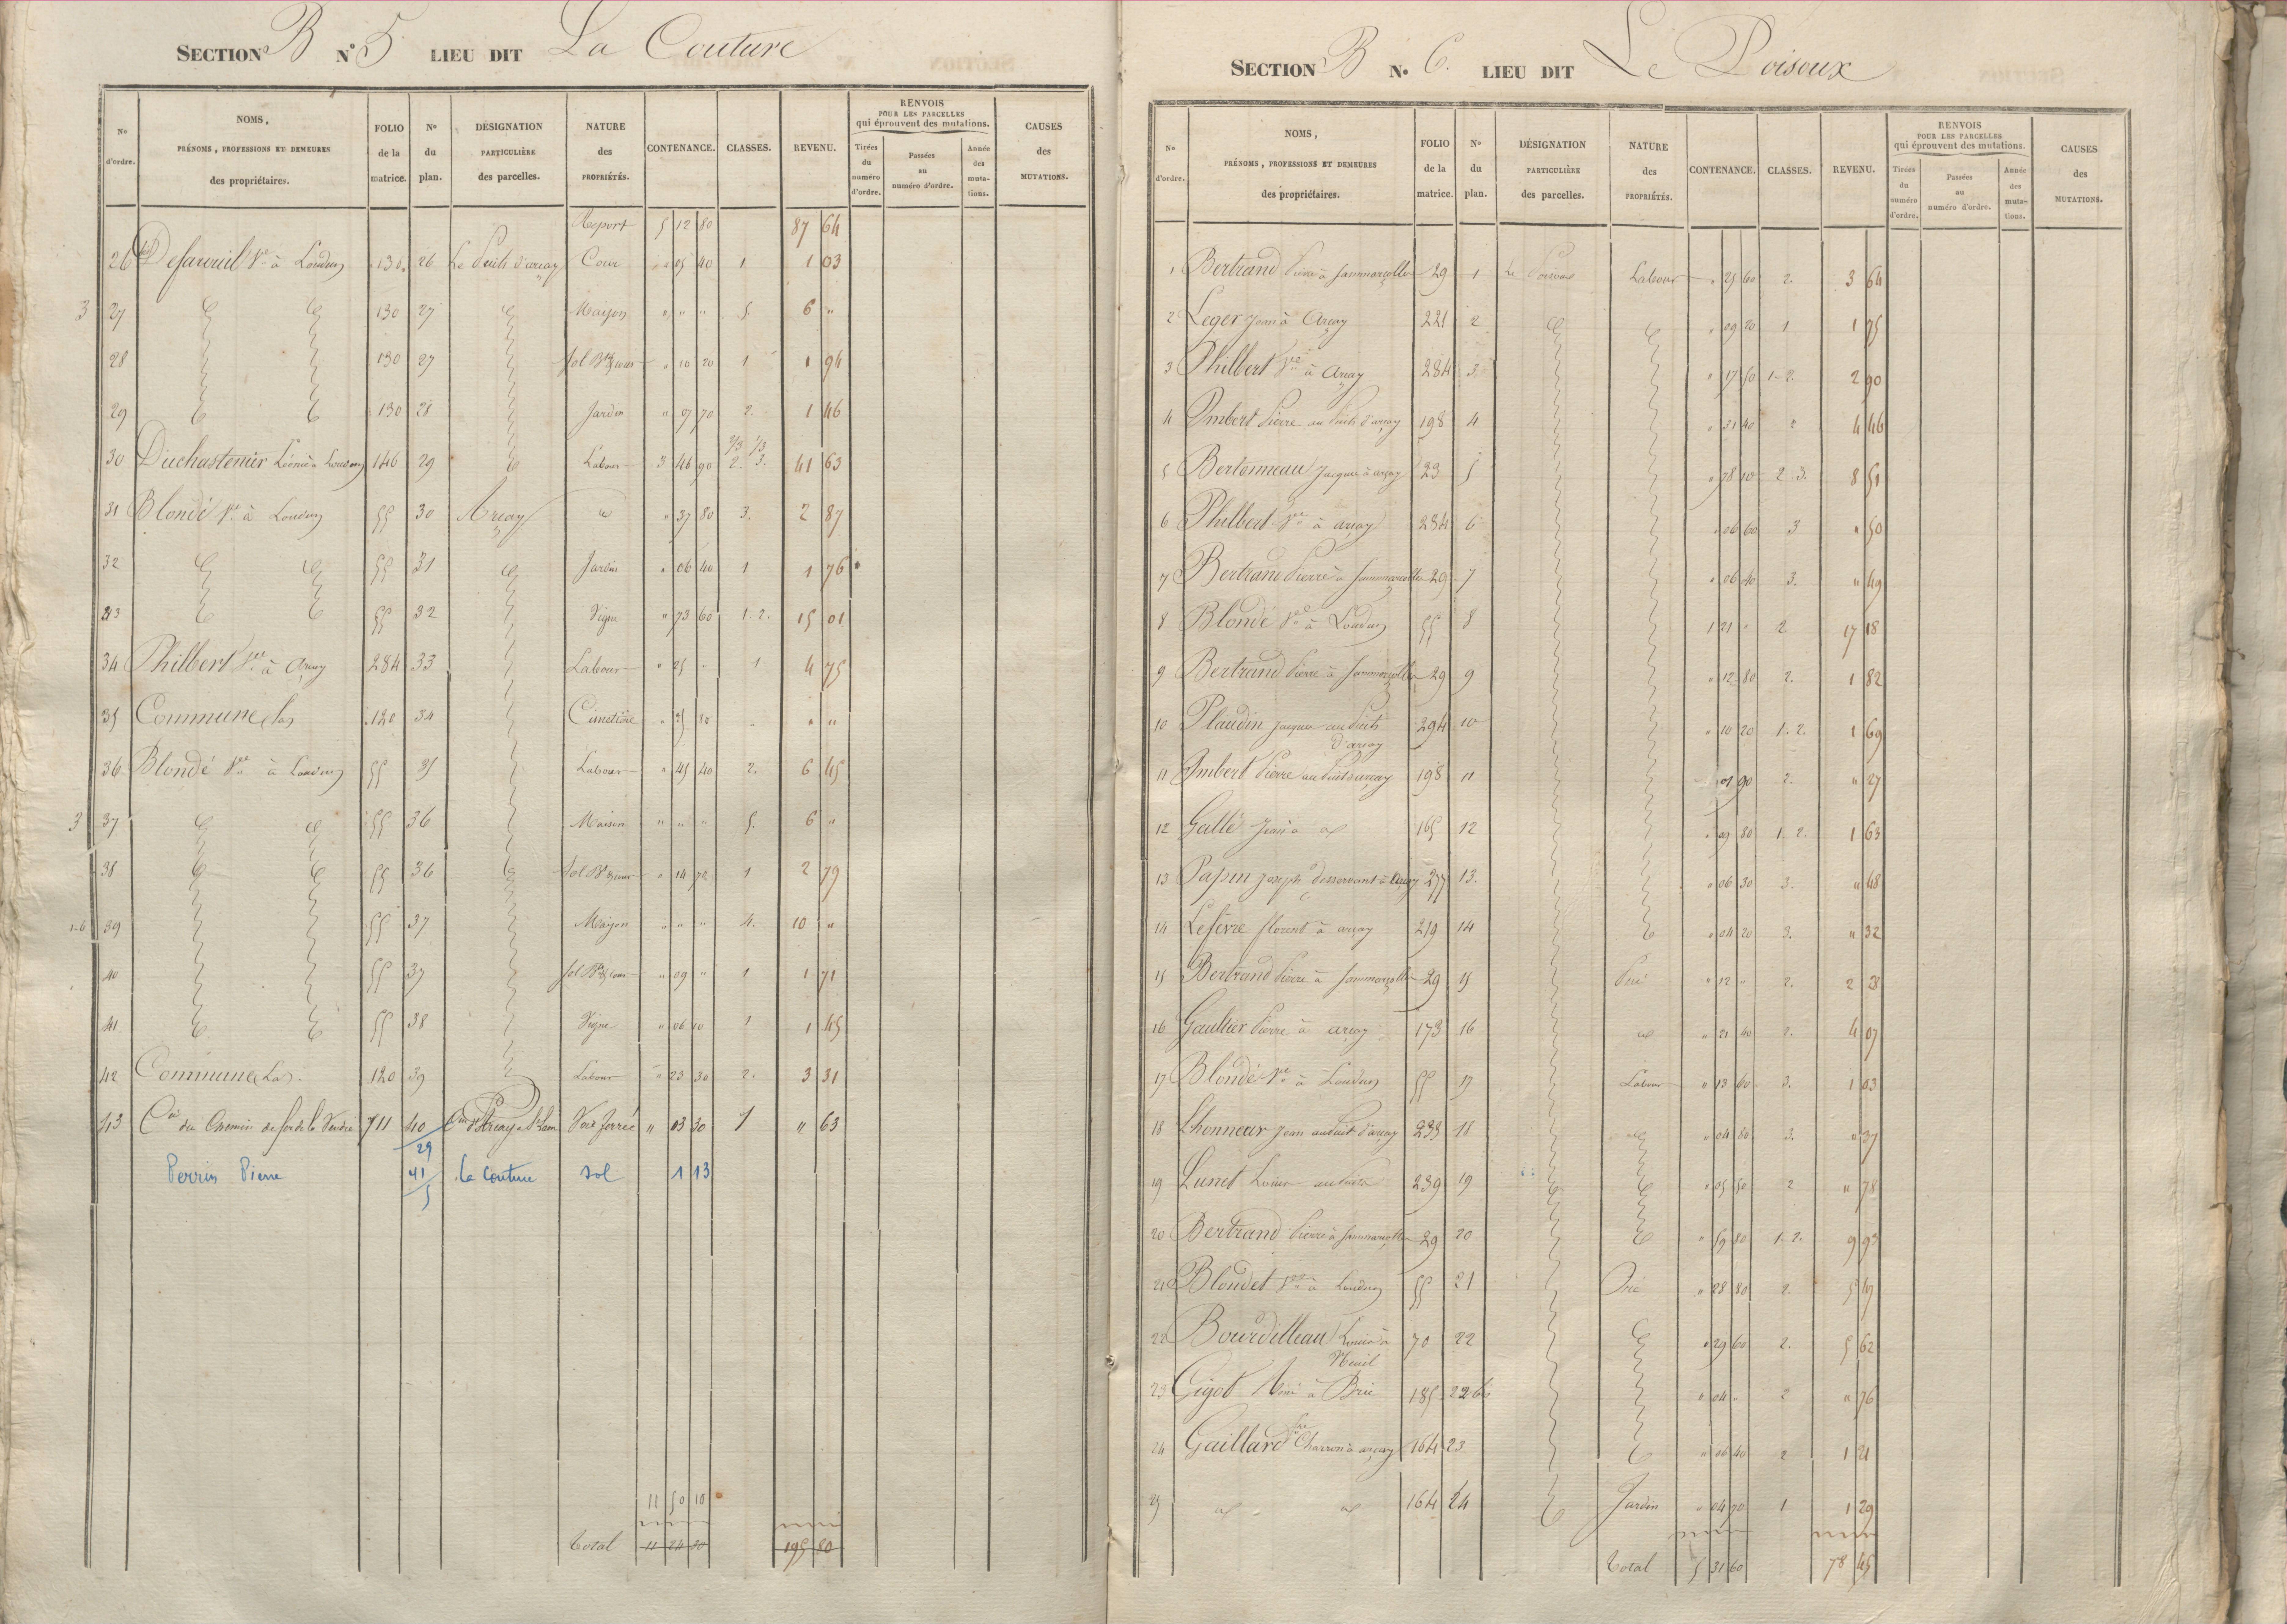 SECTION B N° 5 LIEU DIT La Couture
N° d'ordre. NOMS, PRÉNOMS, PROFESSIONS ET DEMEURES des propriétaires. FOLIO de la matrice. N° du plan. DÉSIGNATION PARTICULIÈRE des parcelles. NATURE des PROPRIÉTÉS. CONTENANCE. CLASSES. REVENU. RENVOIS POUR LES PARCELLES qui éprouvent des mutations. Tirées du numéro d'ordre. Passées au numéro d'ordre. Année des mutations. CAUSES des MUTATIONS.
Report 5 12 80 87 64
26 Vve à Loudun 130 26 Le Puits d'arcay Cour " 05 40 1 1 03
3 27 130 27 Maison " " " 5. 6 "
28 130 27 Sol Bt & cour " 10 20 1 1 94
29 130 28 Jardin " 07 70 2. 1 46
30 Léonie à Loudun 146 29 Labour 3 46 90 2/3 2. 1/3 3. 41 63
31 Blondé Vve à Loudun 55 30 Arcay " 37 80 3. 2 87
32 55 31 Jardin " 06 40 1 1 76
33 55 32 Vigne " 73 60 1. 2. 15 01
34 Philbert Vve à Arcay 284 33 Labour " 25 " 1 4 75
35 Commune (la) 120 34 Cimetière " 80 " "
36 Blondé Vve à Loudun 55 35 Labour " 45 40 2. 6 45
3 37 55 36 Maison " " " 5. 6 "
38 55 36 Sol Bt & cour " 14 70 1 2 79
39 55 37 Maison " " " 4. 10 "
40 55 37 Sol Bt & cour " 09 " 1 1 71
41 55 38 Vigne " 06 10 1 1 45
42 Commune (La). 120 39 Labour " 23 30 2. 3 31
43 Cie des Chemins de fer de la Vendée 711 40/29 Voie ferrée " 03 30 1 " 63
Perrin Pierre 41/5 la Couture sol 1 13
11 50 10
Total 11 24 10 195 80
SECTION B N° 6. LIEU DIT Le Poisoux
N° d'ordre. NOMS, PRÉNOMS, PROFESSIONS ET DEMEURES des propriétaires. FOLIO de la matrice. N° du plan. DÉSIGNATION PARTICULIÈRE des parcelles. NATURE des PROPRIÉTÉS. CONTENANCE. CLASSES. REVENU. RENVOIS POUR LES PARCELLES qui éprouvent des mutations. Tirées du numéro d'ordre. Passées au numéro d'ordre. Année des mutations. CAUSES des MUTATIONS.
1 Bertrand Pierre à Sammarçolles 29 1 Le Poisoux Labour " 25 60 2. 3 64
2 Leger Jean à Arcay 221 2 " 09 20 1 1 75
3 Philbert Vve à Arcay 284 3 " 17 50 1-2. 2 90
4 Imbert Pierre au Puits d'arcay 198 4 " 31 40 2 4 46
5 Bertonneau Jacques à arcay 23 5 " 78 10 2. 3. 8 51
6 Philbert Vve à arcay 284 6 " 06 60 3 " 50
7 Bertrand Pierre à Sammarçolles 29 7 " 06 40 3. " 49
8 Blondé Vve à Loudun 55 8 1 21 " 2 17 18
9 Bertrand Pierre à Sammarçolles 29 9 " 12 80 2. 1 82
10 Plaudin Jacques au Puits d'arcay 294 10 " 10 20 1. 2. 1 69
11 Imbert Pierre au Puits arcay 198 11 " 01 90 2. " 27
12 Gallé Jean à 165 12 " 09 80 1. 2. 1 63
13 Papin Joseph desservant à Arcay 277 13. " 06 30 3. " 48
14 Lefèvre florent à arcay 219 14 " 04 20 3. " 32
15 Bertrand Pierre à Sammarçolles 29 15 Pré " 12 " 2. 2 28
16 Gaultier Pierre à arcay 173 16 " 21 40 2. 4 07
17 Blondé Vve à Loudun 55 17 Labour " 13 60 3. 1 03
18 Lhonneur Jean au Puits d'arcay 18 " 04 80 3. " 37
19 Lunet Louis au Puits 239 19 " 05 50 2 " 78
20 Bertrand Pierre à Sammarçolles 29 20 " 59 80 1. 2. 9
21 Blondet Vve à Loudun 55 21 Pré " 28 80 2. 5 47
22 Bourdilleau Louis à Neuil 70 22 " 29 60 2. 5 62
23 Gigot à Brie 185 22 bis " 04 " 2 " 76
24 Gaillard Charron à arcay 164 23 " 06 40 2 1 21
25 164 24 Jardin " 04 70 1 1 29
Total 5 31 60 78 45